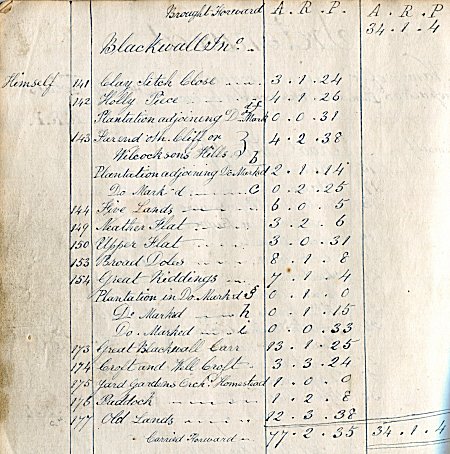 Brought Forward A. R. P. A. R. P
34.1.4
Blackwall Jno.
Himself 141 Clay Sitch Close 3.1.24
142 Holly Piece 4.1.26
Plantation adjoining Do Mark'd 0.0.31
143 Far end oth Cliff or 4.2.38
Wilcocksons Hills b
Plantation adjoining Do Marked 2.1.14
Do Mark'd c 0.2.25
144 Five Lands 6.0.5
149 Neather Flat 3.2.6
150 Upper Flat 3.0.31
153 Broad Doles 8.1.8
154 Great Riddings 7.1.4
Plantation in Do Markd g 0.1.0
Do Markd h 0.1.15
Do. Marked i 0.0.33
173 Great Blackwall Carr 13.1.25
174 Croft and Well Croft 3.3.24
175 Yard Gardens Orch. Homestead 1.0.0
176 Paddock 1.2.8
177 Old Lands 12.3.38
Carried Forward 77.2.35 34.1.4